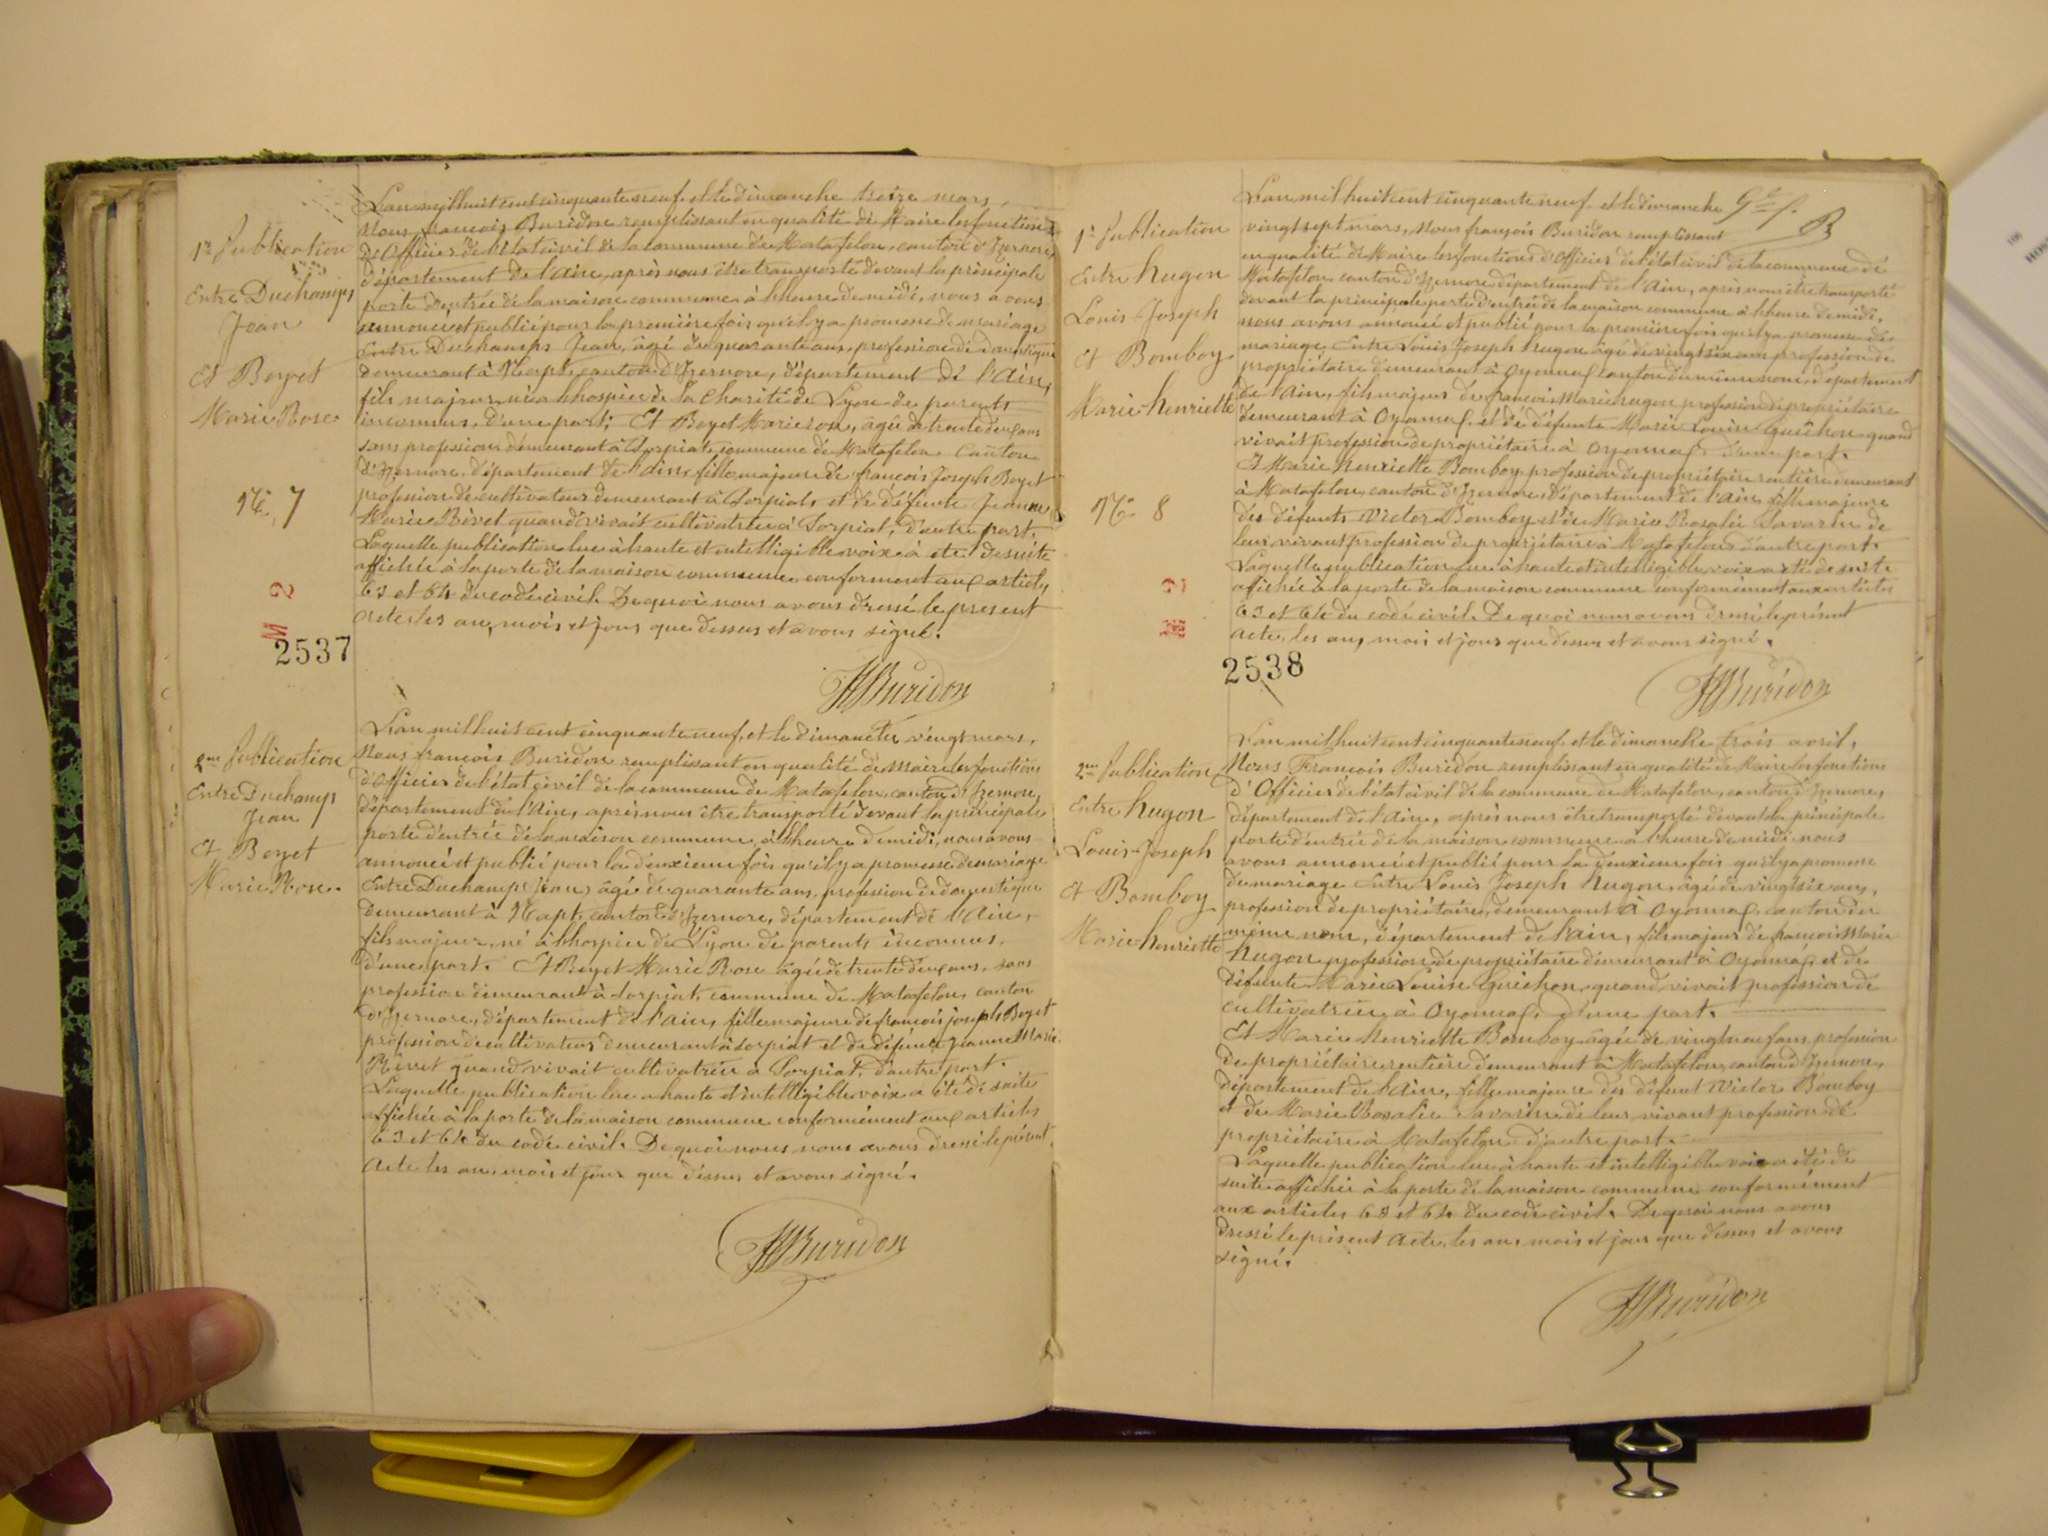 1re Publication
Entre Duchamps
Jean
Et Beyet
Marie Rose
No 7
M 2
2537
L'an mil huit cent cinquante neuf et le dimanche treize mars,
Nous françois Buridon remplissant en qualité de Maire les fonctions
d'Officier de l'état civil de la commune de Matafelon, canton d'Izernore,
département de l'Ain, après nous être transporté devant la principale
porte d'entrée de la maison commune à l'heure de midi, nous avons
annoncé et publié pour la première fois qu'il y a promesse de mariage
Entre Duchamps Jean, âgé de quarante ans, profession de domestique
demeurant à Napt, canton d'Izernore, département de l'Ain,
fils majeur né à l'hospice de la Charité de Lyon de parents
inconnus, d'une part; Et Beyet Marie rose, âgée de trente deux ans
sans profession demeurant à Sorpiat, commune de Matafelon Canton
d'Izernore, département de l'ain, fille majeure de françois Joseph Beyet
profession de cultivateur demeurant à Sorpiat, et de défunte Jeanne
Marie Bévet quand vivait cultivatrice à Sorpiat, d'autre part.
Laquelle publication lue à haute et intelligible voix a été de suite
affichée à la porte de la maison commune conforment aux articles
63 et 64 du code civil. De quoi nous avons dressé le present
acte les an, mois et jour que dessus et avons signé.
Buridon
2me Publication
Entre Duchamps
Jean
Et Beyet
Marie Rose.
L'an mil huit cent cinquante neuf, et le dimanche vingt mars,
Nous françois Buridon remplissant en qualité de Maire les fonctions
d'Officier de l'état civil de la commune de Matafelon, canton d'Izernore,
département de l'Ain, après nous être transporté devant la principale
porte d'entrée de la maison commune à l'heure de midi, nous avons
annoncé et publié pour la deuxième fois qu'il y a promesse de mariage
Entre Duchamps Jean, âgé de quarante ans, profession de domestique
demeurant à Napt, canton d'Izernore, département de l'Ain,
fils majeur, né à l'hospice de Lyon de parents inconnus,
d'une part. Et Beyet Marie Rose âgée de trente deux ans, sans
profession demeurant à Sorpiat, commune de Matafelon, canton
d'Izernore, département de l'Ain, fille majeure de françois joseph Beyet
profession de cultivateur demeurant à Sorpiat et de défunte Jeanne Marie
quand vivait cultivatrice à Sorpiat, d'autre part.
Laquelle publication lue a haute et intelligible voix a été de suite
affichée à la porte de la maison commune conformément aux articles
63 et 64 du code civil. De quoi nous nous avons dressé le présent
Acte les an, mois et jour que dessus et avons signé.
Buridon
1re Publication
Entre hugon
Louis Joseph
Et Bomboy
Marie henriette
No 8
M 2
2538
L'an mil huit cent cinquante neuf et le dimanche
vingt sept mars, Nous françois Buridon remplissant
en qualité de Maire les fonctions d'Officier de l'état civil de la commune de
Matafelon, canton d'Izernore département de l'Ain, après nous être transporté
devant la principale porte d'entrée de la maison commune à l'heure de midi,
nous avons annoncé et publié pour la première fois qu'il y a promesse de
mariage, Entre Louis Joseph hugon âgé de vingt six ans profession de
propriétaire demeurant à Oyonnax canton du même nom, département
de l'Ain, fils majeur de françois Marie hugon profession de propriétaire
demeurant à Oyonnax, et de défunte Marie Louise Guichon quand
vivait profession de propriétaire à Oyonnax, d'une part.
Et Marie henriette Bomboy profession de propriétaire rentière demeurant
à Matafelon, canton d'Izernore, département de l'Ain, fille majeure
des défunts Victor Bomboy et de Marie Rosalie Savarin de
leur vivant profession de propriétaire à Matafelon, d'autre part.
Laquelle publication lue à haute et intelligible voix a été de suite
affichée à la porte de la maison commune conformément aux articles
63 et 64 du code civil. De quoi nous avons dressé le présent
Acte, les an, mois et jour que dessus et avons signé.
Buridon
2me Publication
Entre hugon
Louis Joseph
et Bomboy
Marie henriette
L'an mil huit cent cinquante neuf et le dimanche trois avril,
Nous François Buridon remplissant en qualité de Maire les fonctions
d'Officier de l'état civil de la commune de Matafelon, canton d'Izernore,
département de l'ain, après nous être transporté devant la principale
porte d'entrée de la maison commune à l'heure de midi nous
avons annoncé et publié pour la deuxième fois qu'il y a promesse
de mariage Entre Louis Joseph hugon, âgé de vingt six ans,
profession de propriétaire, demeurant à Oyonnax, canton du
même nom, département de l'ain, fils majeur de françois Marie
hugon, profession de propriétaire demeurant à Oyonnax, et de
défunte Marie Louise Guichon, quand vivait profession de
cultivatrice à Oyonnax, d'une part.
Et Marie henriette Bomboy âgée de vingt neuf ans, profession
de propriétaire rentière demeurant à Matafelon, canton d'Izernore,
département de l'Ain, fille majeure des défunt Victor Bomboy
et de Marie Rosalie Savarin de leur vivant profession de
propriétaire à Matafelon d'autre part.
Laquelle publication lue à haute et intelligible voix a été de
suite affichée à la porte de la maison commune conformément
aux articles 63 et 64 du code civil. De quoi nous avons
dressé le présent Acte, les an, mois et jour que dessus et avons
signé.
Buridon